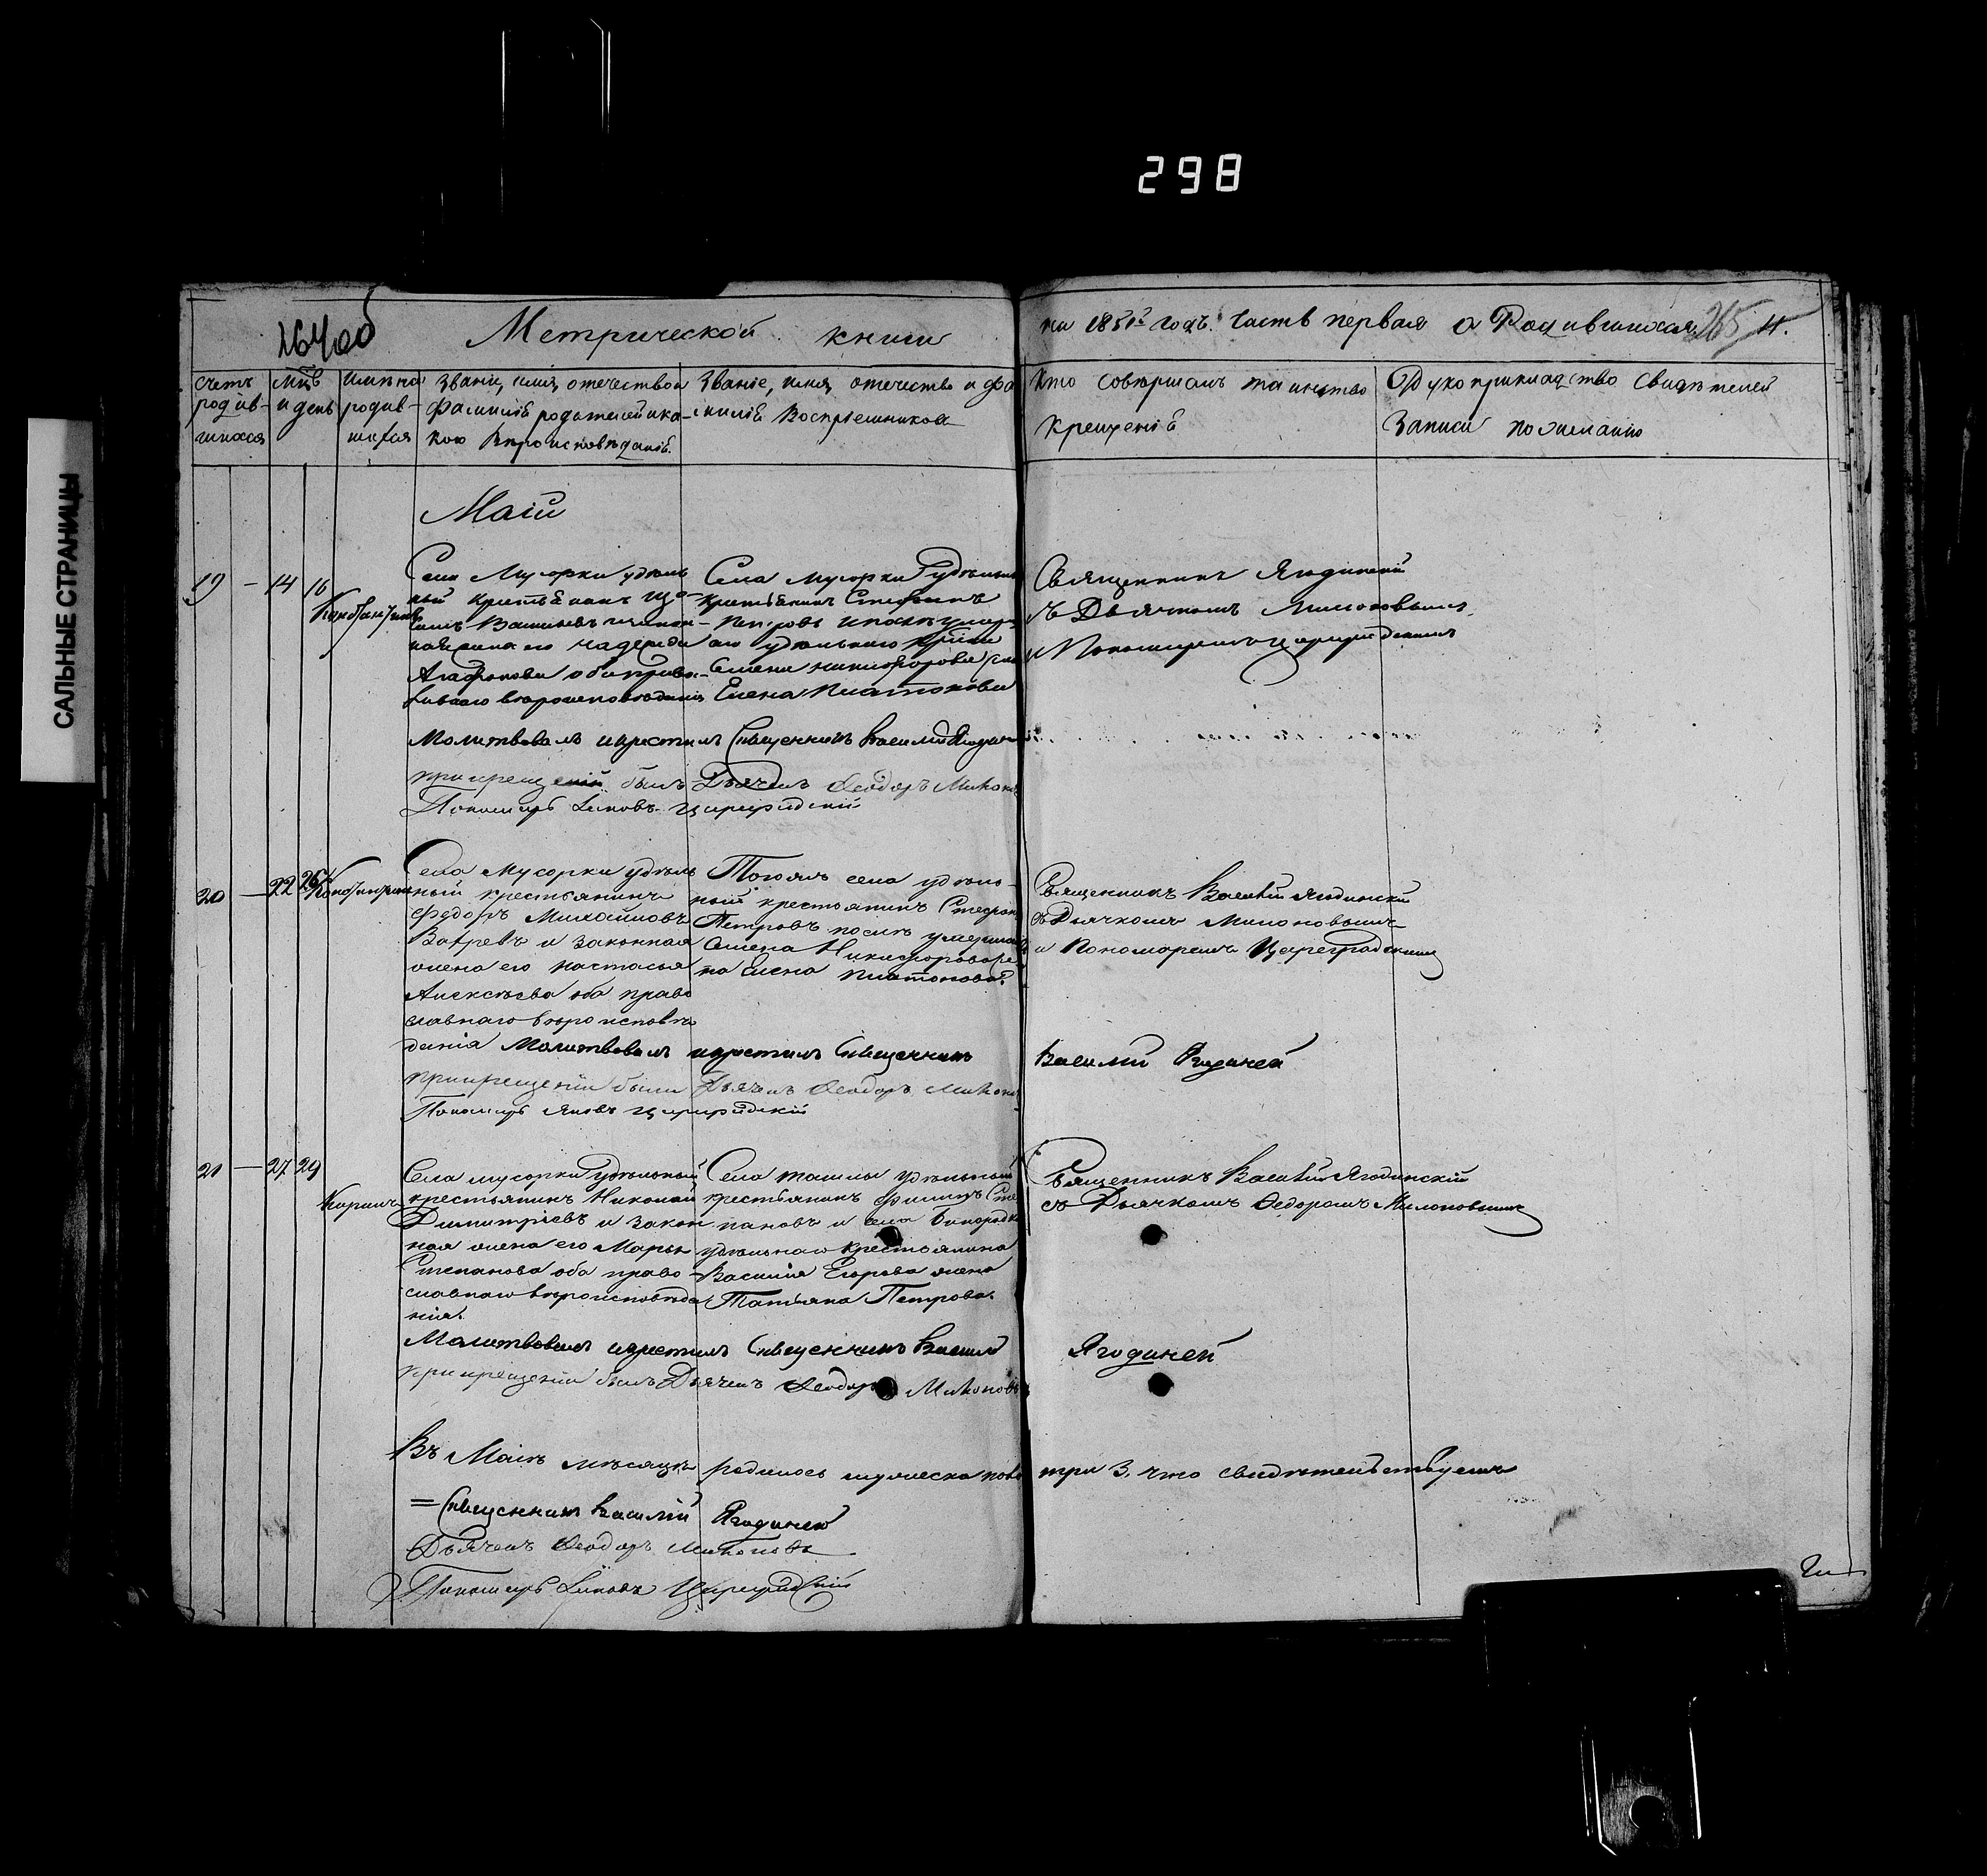 298
САЛЬНЫЕ СТРАНИЦЫ
164об
Метрической книги
на 1851й годъ. Часть первая о Родившихся
265
счетъ родив-шихся
мцъ и день
имяна родив-шихся
Званіе, имя, отечество и
фамиліе родителей и ка-
кого вероисповеданіе.
Званіе, имя, отечество и фа
миліе Воспріемниковъ
Кто совершалъ таинство
крещеніе
Рукоприкладство свидетелей
Записи по желанію
Маій
19 — 14 16
Константинъ
Села Мусорки удель
ный крестьянинъ
Агафонова оба право-
славнаго вероисповеданія
Села Мусорки удельный
крестьянинъ Стефанъ
Петровъ и
удельнаго
Семена Никифорова
Елена Платонова
Священникъ Ягодинскій
съ Дьячкомъ Милоновымъ
и Пономаремъ Цареградскимъ
Молитвовалъ и крестилъ Священникъ Василий
при крещеніи былъ Дьячекъ Феодоръ
Пономарь Іаковъ Цареградскій
20 — 22 26
Константинъ
Села Мусорки удель
ный крестьянинъ
Федоръ Михайловъ
и законная
жена его Настасья
Алексѣева оба право
славнаго вероисповѣ
данія Молитвовалъ и крестилъ Священникъ
Тогожъ села удель-
ный крестьянинъ Стефанъ
Петровъ после умершаго
Семена Никифорова
на Елена Платонова
Священникъ Василій Ягодинскій
съ Дьячкомъ Милоновымъ
и Пономаремъ Цареградскимъ
Василий Ягодинской
при крещеніи были Дьячекъ Феодоръ
Пономарь Яковъ Цареградскій
21 — 27 29
Кирилъ
Села Мусорки Удѣльный
крестьянинъ Николай
Димитріевъ и закон
ная жена его Марья
Степанова оба право-
славнаго вероисповѣда
нія.
Села Ташлы удѣльный
крестьянинъ Филипъ Сте
пановъ и села
удѣльнаго крестьянина
Василія Егорова жена
Татьяна Петрова.
Священникъ Василій Ягодинскій
съ Дьячкомъ Федоромъ Милоновымъ
Молитвовалъ и крестилъ Священникъ Василий
Ягодинской
при крещеніи былъ Дьячекъ Феодоръ Милоновъ
Въ Маіѣ мѣсяцѣ родилось мужеска пола три 3. что свидѣтельствуемъ
= Священникъ Василий Ягодинской
Дьячекъ Феодоръ Милоновъ
Пономарь Іаковъ Цареградскій